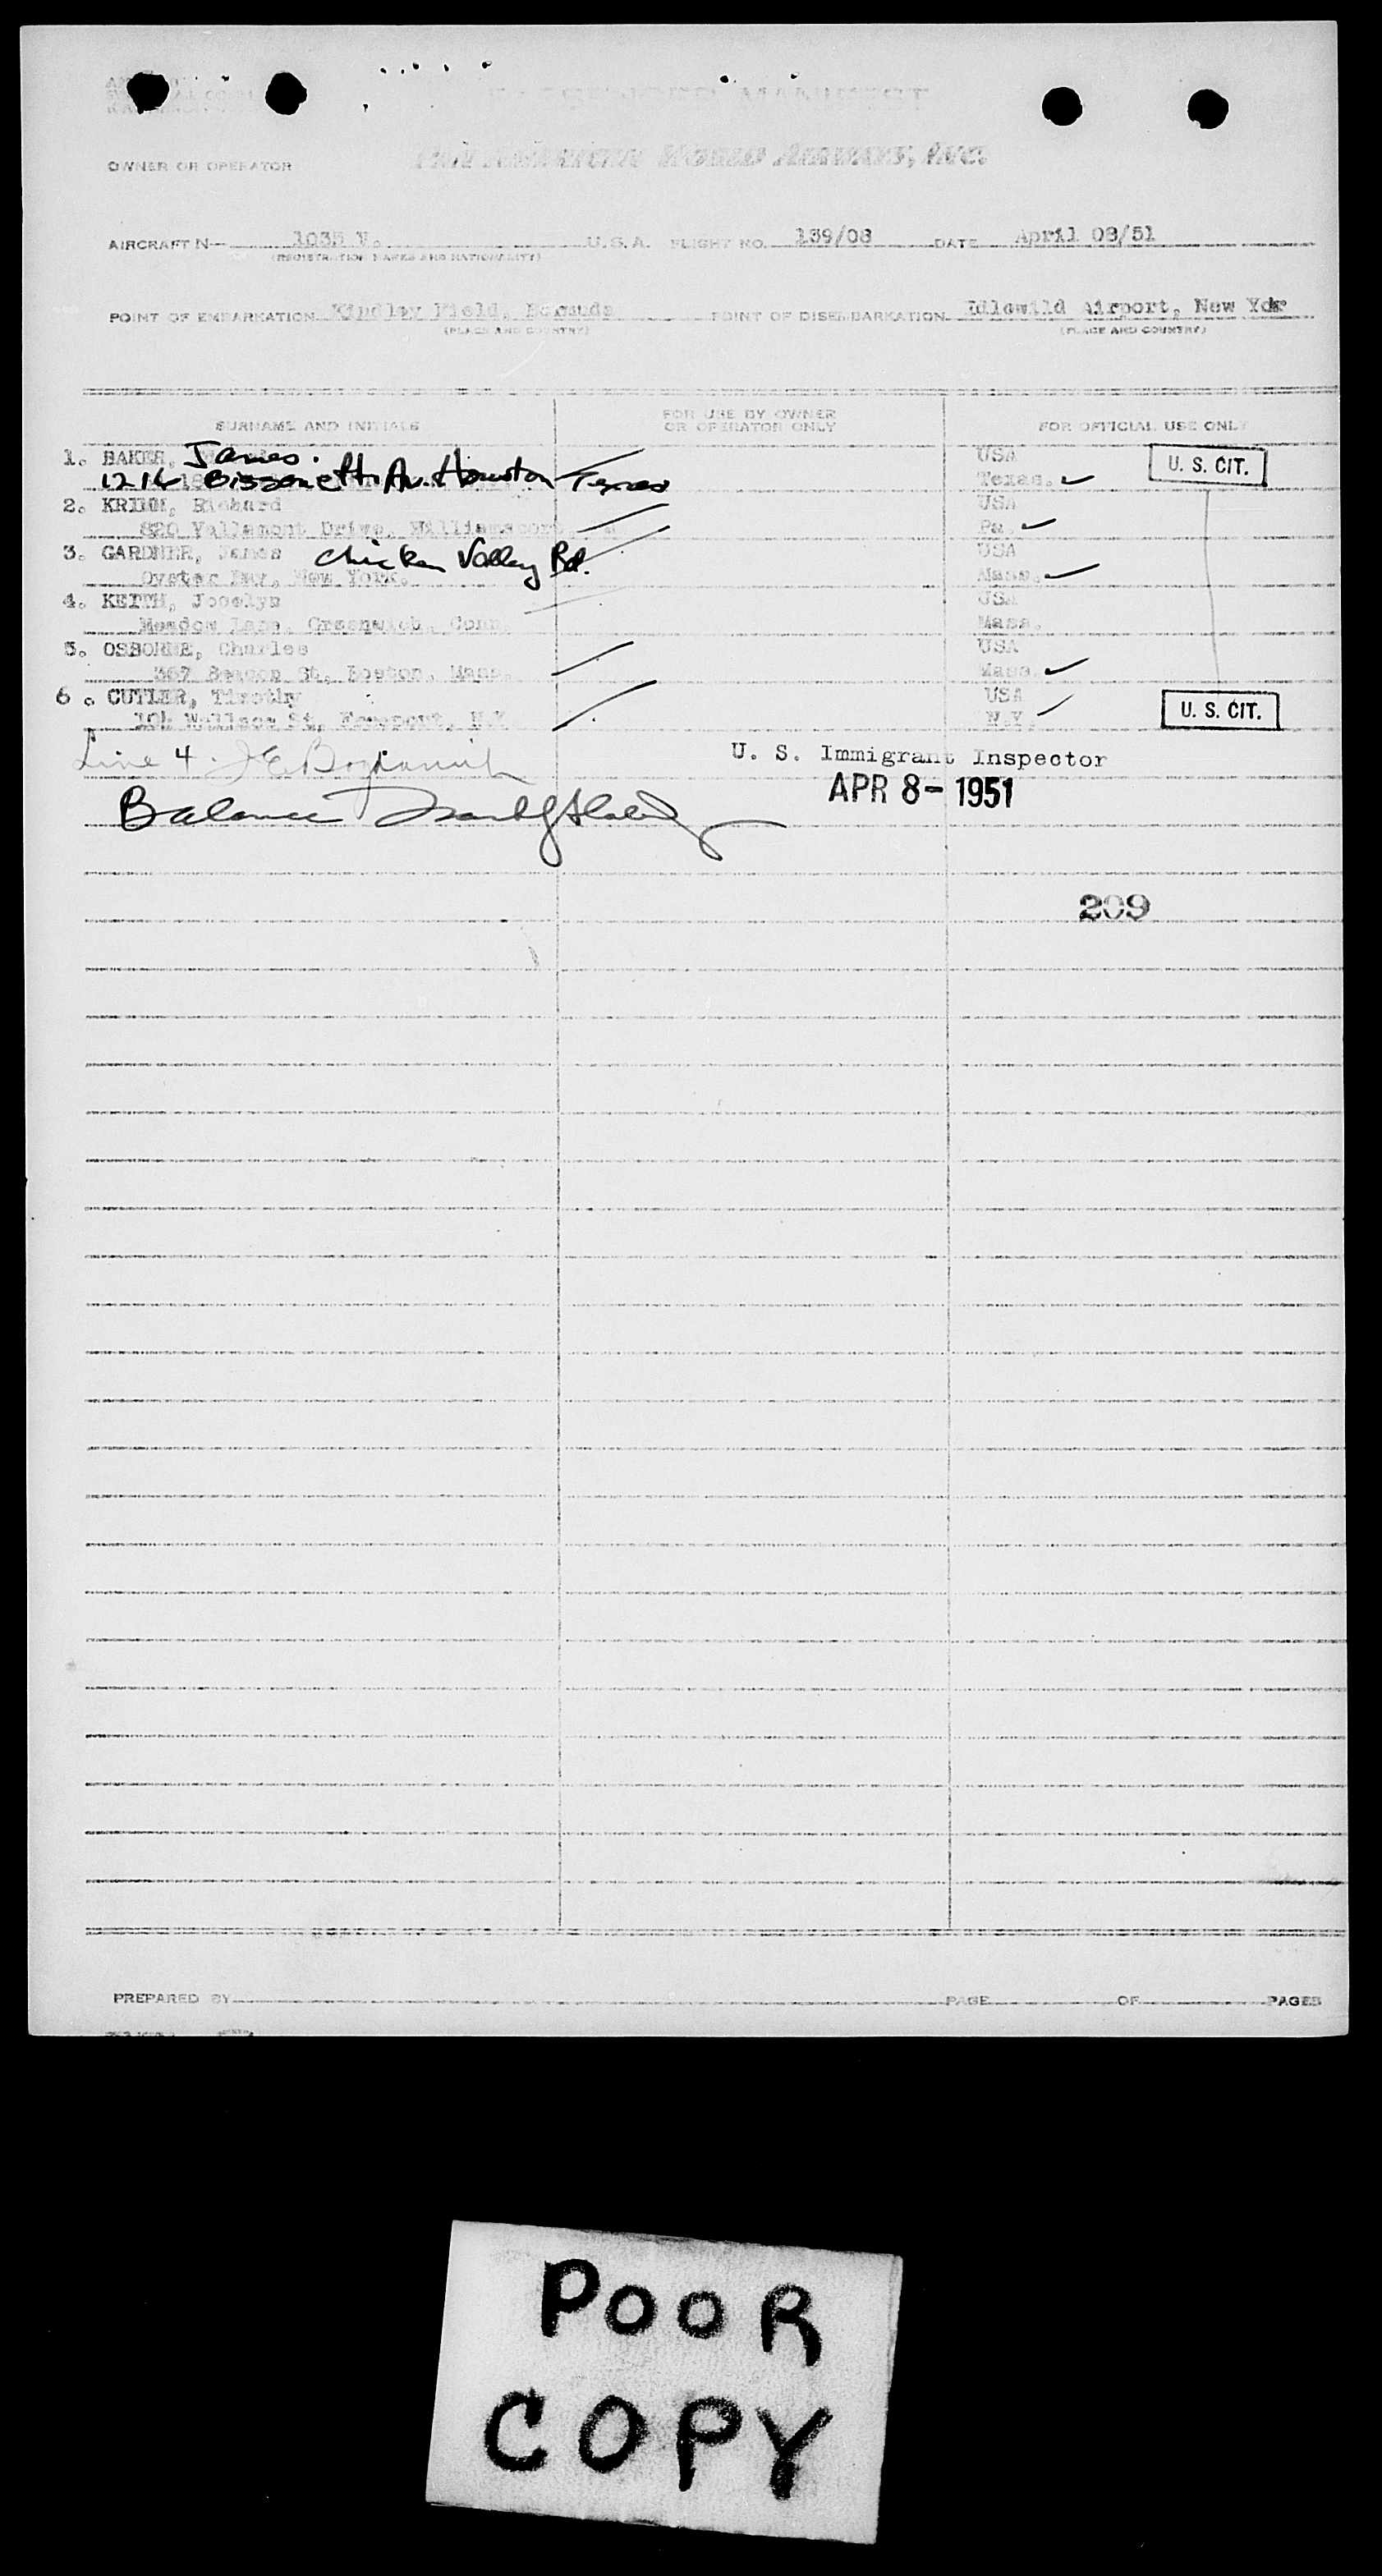 PASSENGER MANIFEST
OWNER OR OPERATOR PAN AMERICAN WORLD AIRWAYS, INC.
AIRCRAFT N— 1035 V. U.S.A. FLIGHT NO. 139/08 DATE April 08/51
(REGISTRATION MARKS AND NATIONALITY)
POINT OF EMBARKATION Kindley Field, Bermuda POINT OF DISEMBARKATION Idlewild Airport, New York
(PLACE AND COUNTRY) (PLACE AND COUNTRY)
SURNAME AND INITIALS FOR USE BY OWNER OR OPERATOR ONLY FOR OFFICIAL USE ONLY
1. BAKER, James. USA U. S. CIT.
1216 Bissonett Av. Houston Texas Texas.
2. Richard USA
820 Vallamont Drive, Pa.
3. GARDNER, James Chicken Valley Rd. USA
Oyster Bay, New York. Mass.
4. KEITH, Jocelyn USA
Meadow Lane, Greenwich, Conn. Mass.
5. OSBORNE, Charles USA
367 Beacon St, Boston, Mass. Mass.
6. CUTLER, Timothy USA U. S. CIT.
Wallace St, Freeport, N.Y. N.Y.
Line 4.
U. S. Immigrant Inspector
Balance
APR 8- 1951
209
PREPARED BY PAGE OF PAGES
POOR
COPY